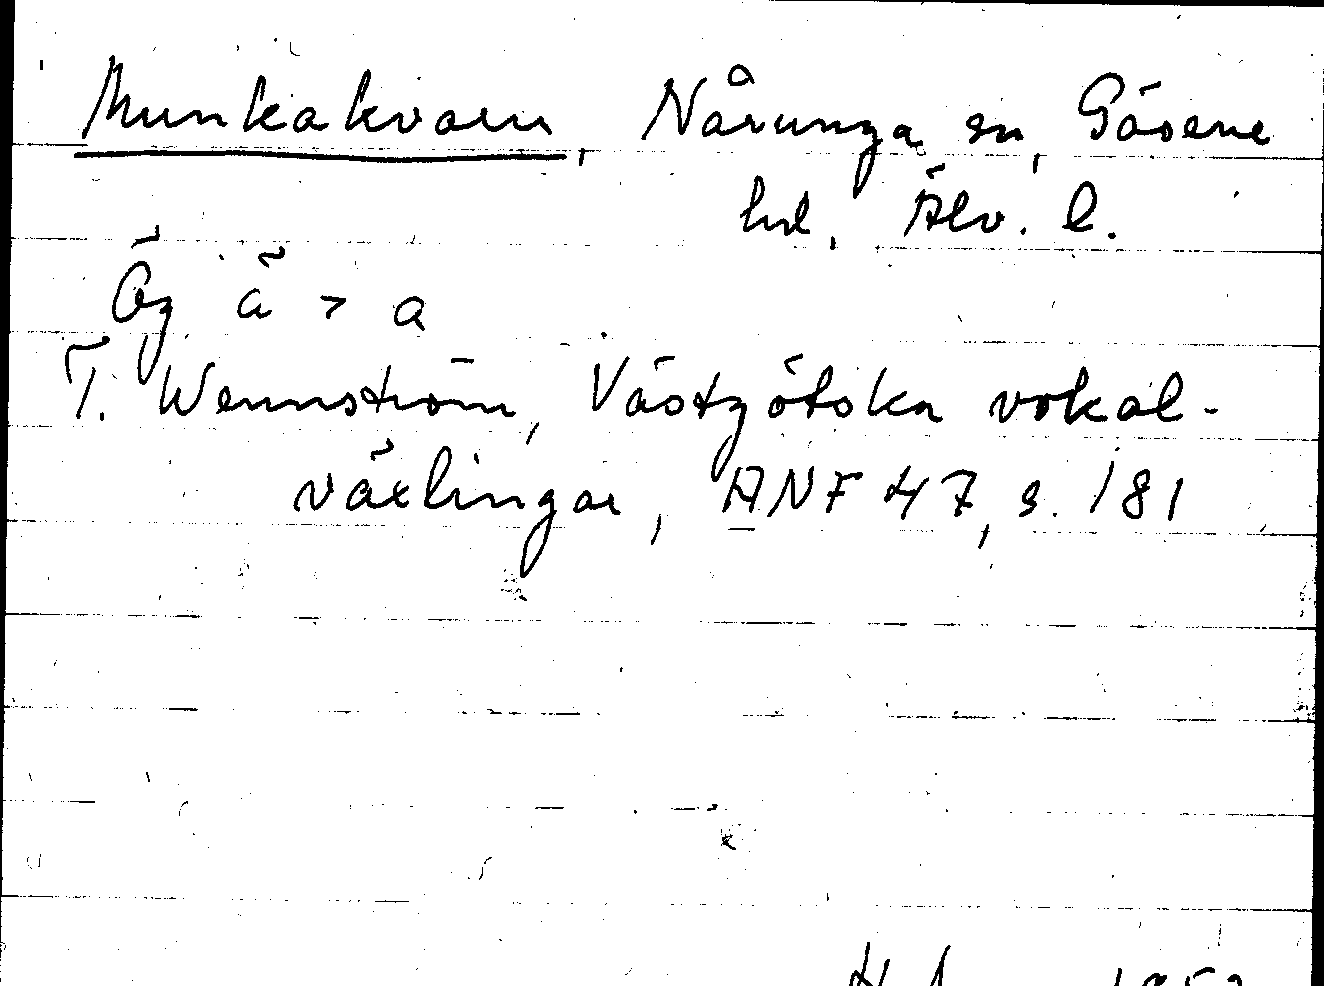 Munkakvarn, Nårunga sn, Gäsene
hd, Älv. l.
Ög ä > a
T. Wennström, Västgötska vokal-
växlingar, ANF 47, s. 181